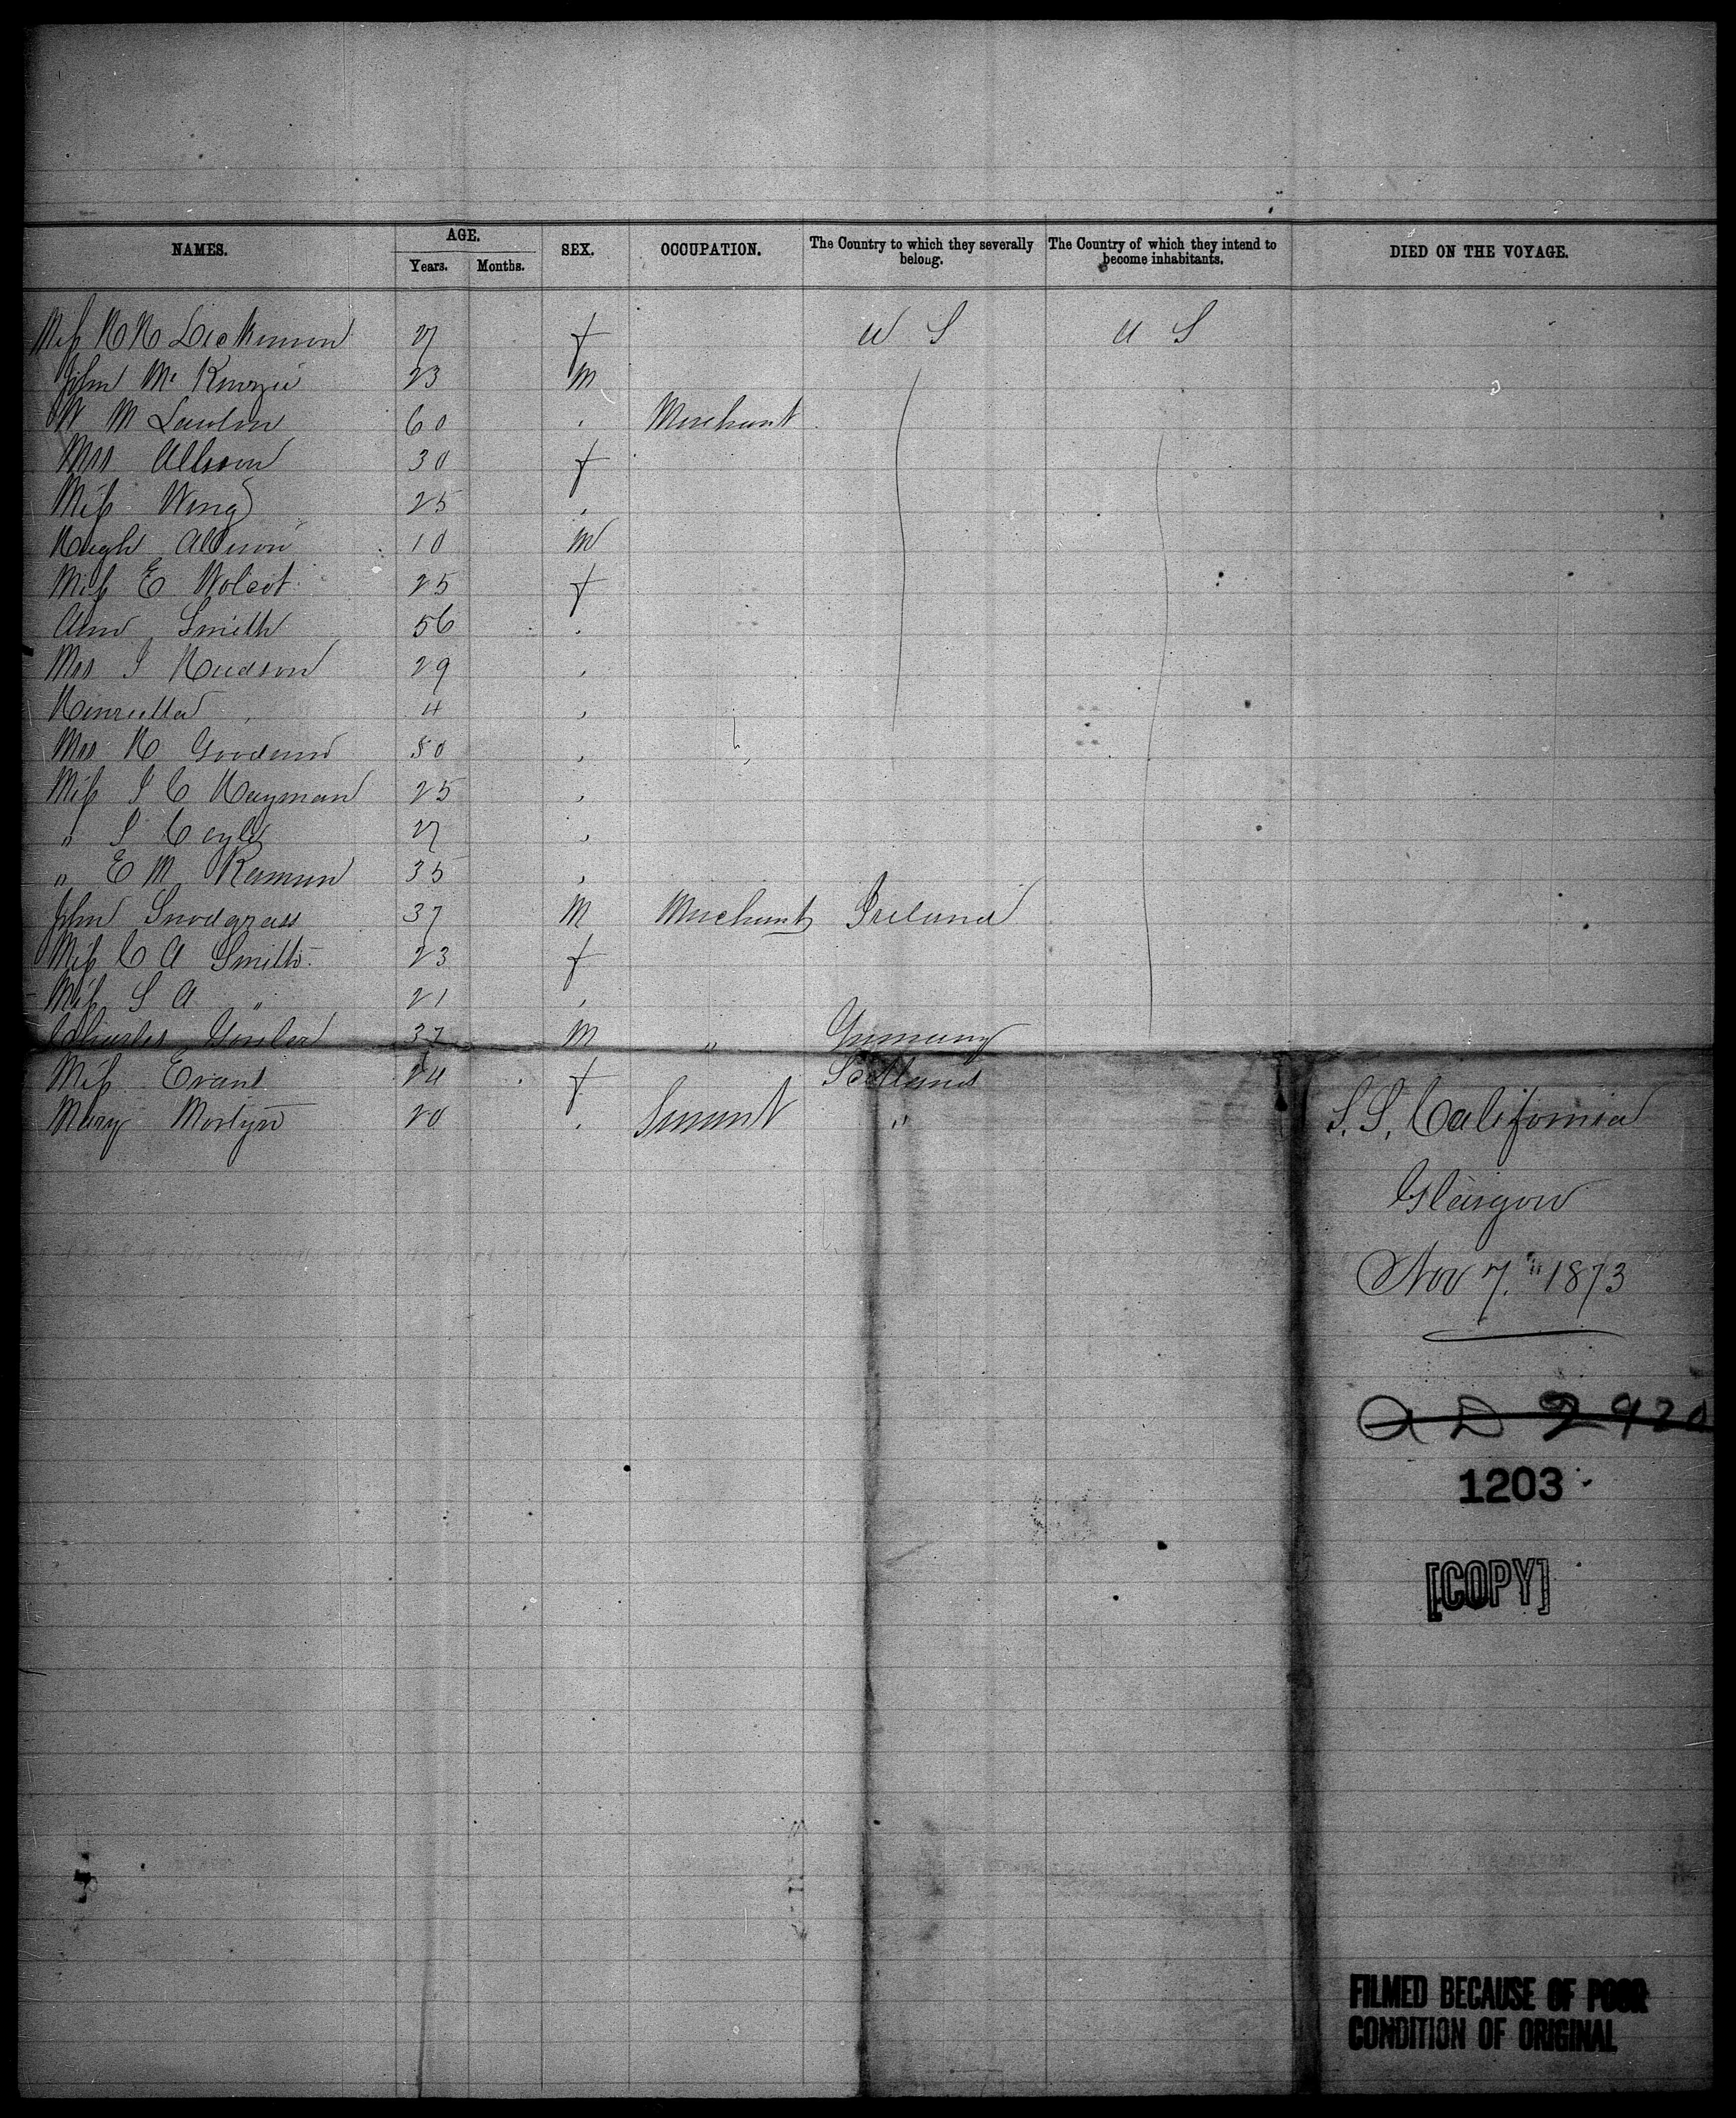 NAMES. AGE. SEX. OCCUPATION. The Country to which they severally belong. The Country of which they intend to become inhabitants. DIED ON THE VOYAGE.
Years. Months.
Miss H H Dickinson 27 f U S U S
John Mc Kenzie 23 M
W M Lawton 60 " Merchant
Mrs Allison 30 f
Miss Wing 25 "
Hugh Allison 10 M
Miss E Wolcot 25 f
Ann Smith 56 "
Mrs J Hudson 29 "
Henrietta " 4 "
Mrs H 50 "
Miss J C Hayman 25 "
" S Coyle 27 "
" E M 35 "
John Snodgrass 37 M Merchant Ireland
Miss C A Smith 23 f
Miss S A " 21 "
Charles 37 M " Germany
Miss Evans 24 f Scotland
Mary Mortyn 20 " Servant "
S.S. California
Glasgow
Nov 7." 1873
A D 2920
1203
[COPY]
FILMED BECAUSE OF POOR
CONDITION OF ORIGINAL